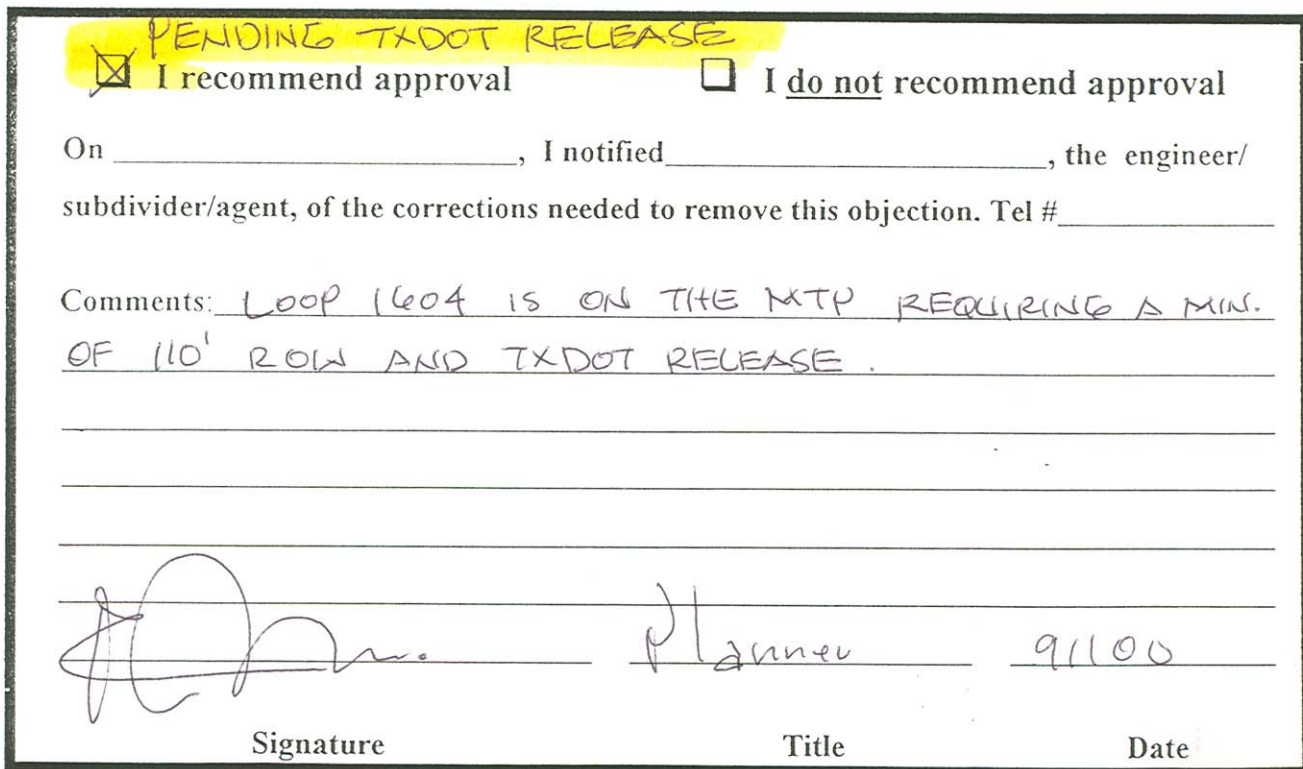 PENDING TXDOT RELEASE
I recommend approval I do not recommend approval
On ____________________, I notified____________________, the engineer/
subdivider/agent, of the corrections needed to remove this objection. Tel #____________
Comments: LOOP 1604 IS ON THE MTP REQUIRING A MIN.
OF 110' ROW AND TXDOT RELEASE.
Planner 9/1/00
Signature Title Date